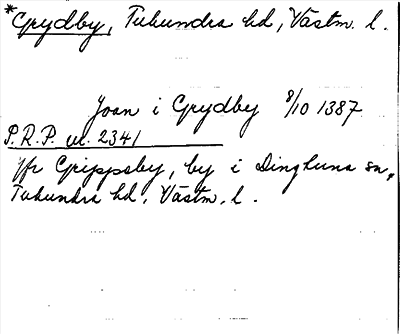 *Grydby, Tuhundra hd, Västm. l.
Joan i Grydby 8/10 1387
P.R.P. nr. 2341
Jfr Grippsby, by i Dingtuna sn,
Tuhundra hd, Västm. l.